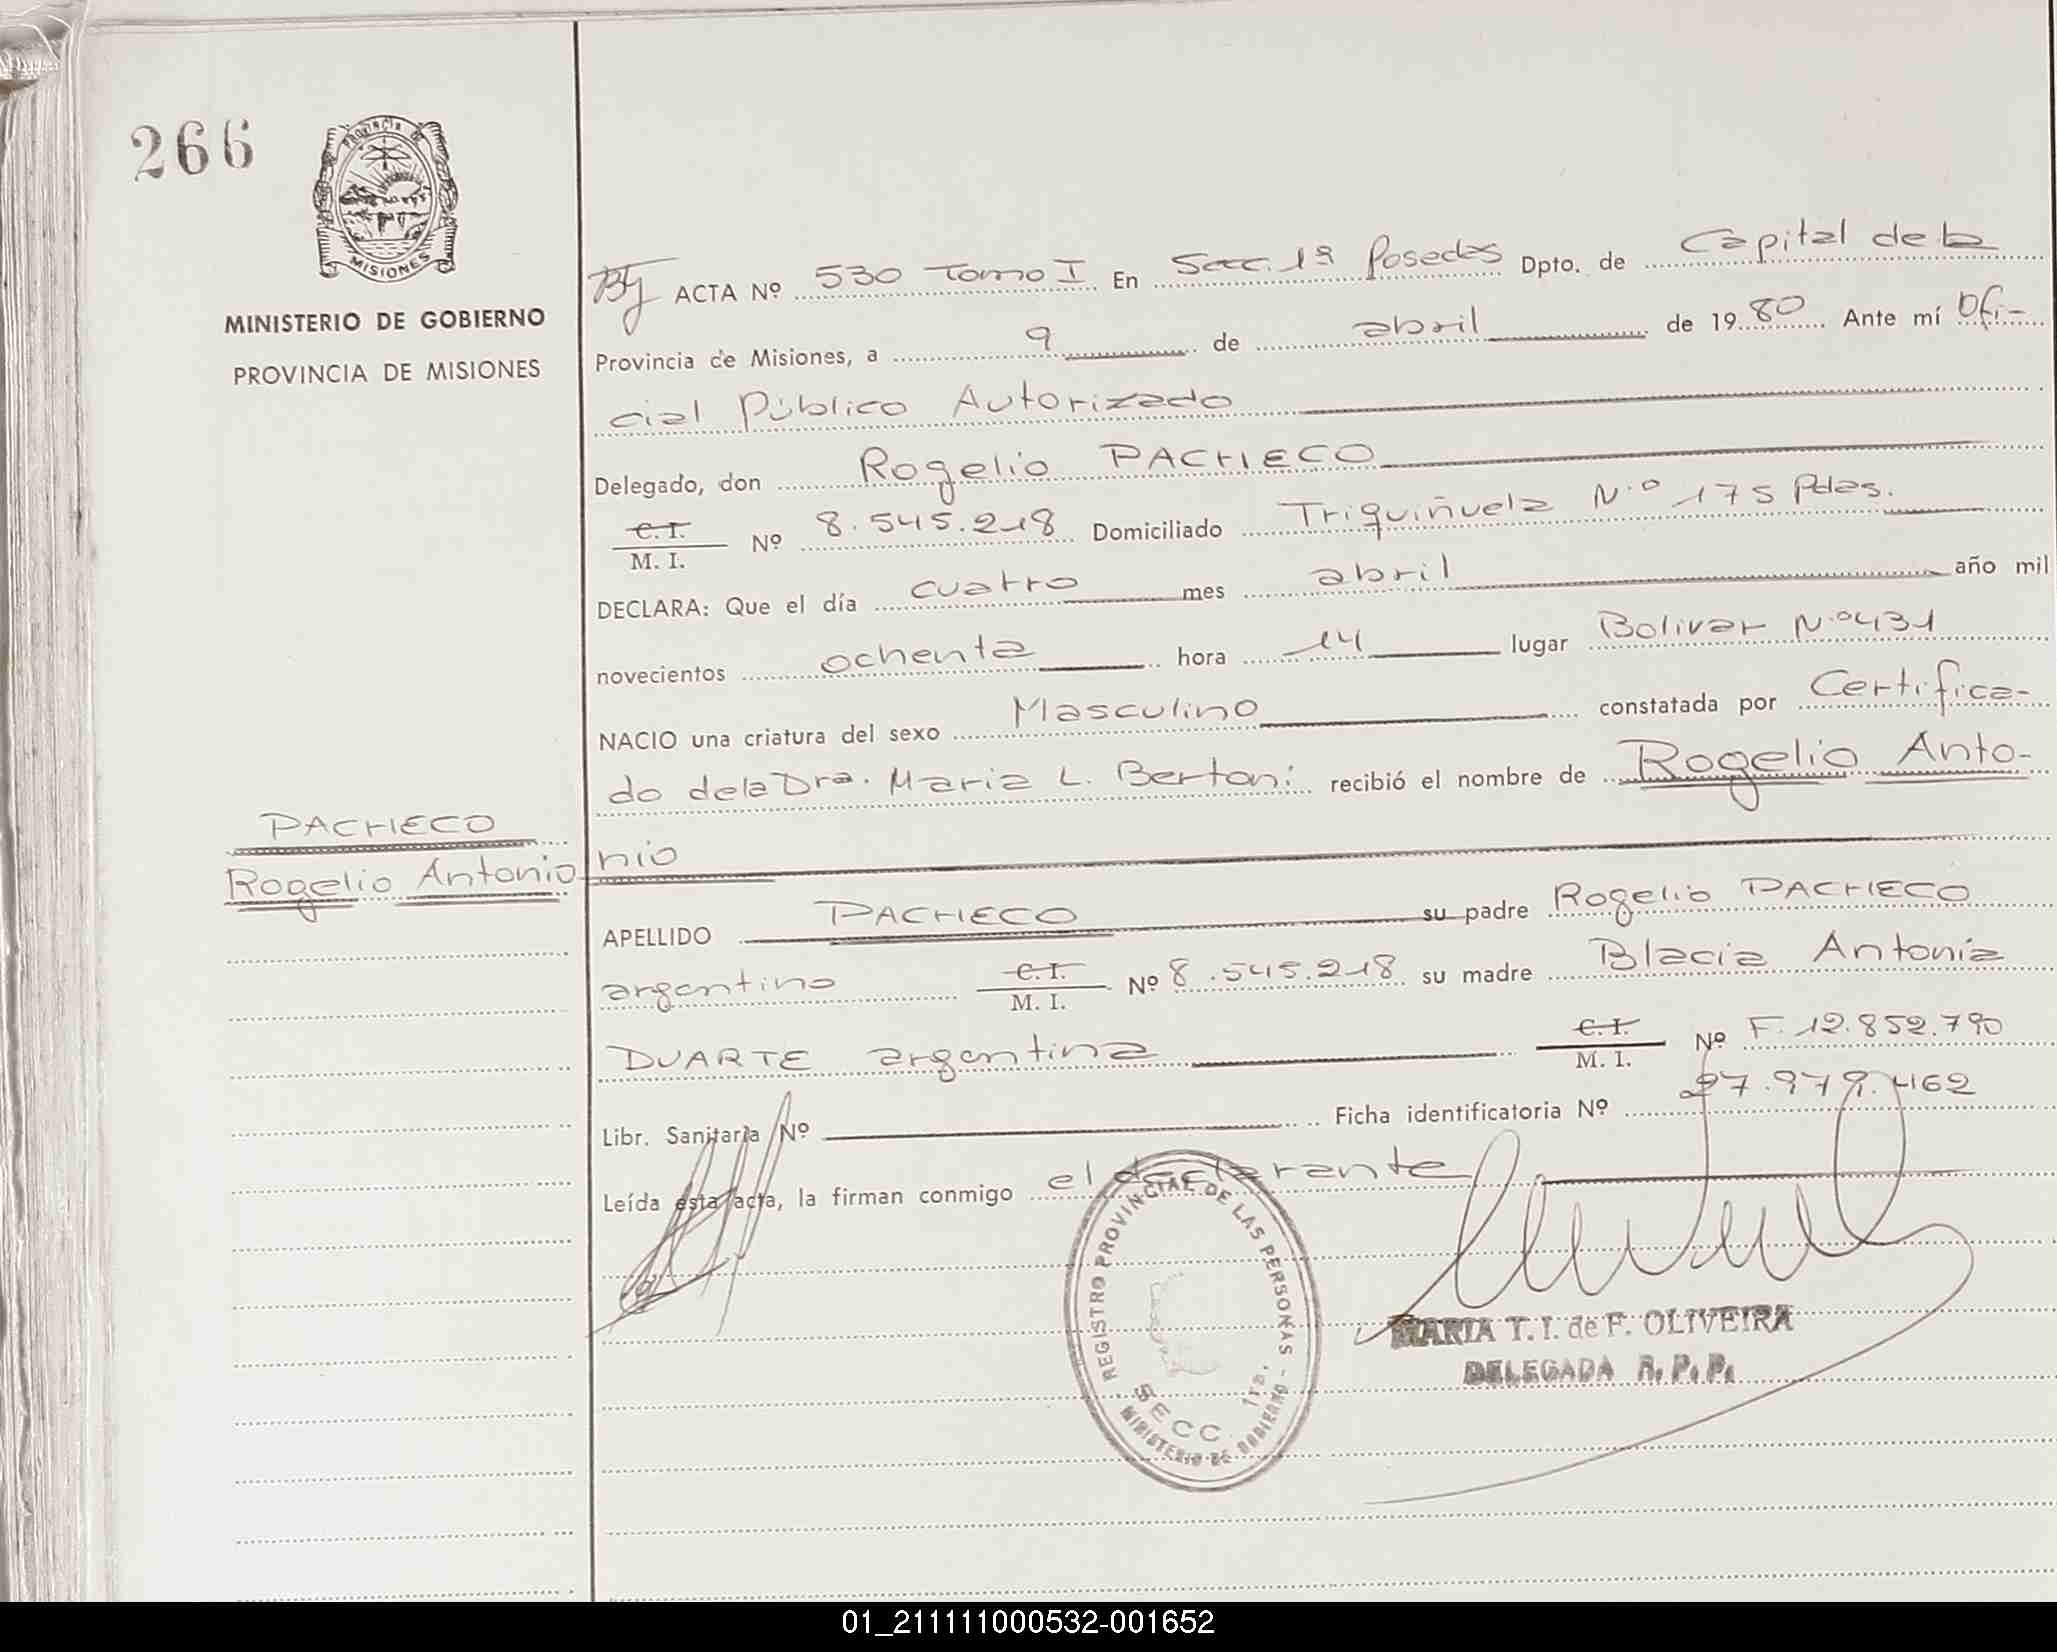 266
PROVINCIA DE
MISIONES
MINISTERIO DE GOBIERNO
PROVINCIA DE MISIONES
PACHECO
Rogelio Antonio
ACTA Nº 530 Tomo I En Secc. 1ª Posadas Dpto. de Capital de la
Provincia de Misiones, a 9 de abril de 1980 Ante mí Ofi-
cial Público Autorizado
Delegado, don Rogelio PACHECO
C.I. M. I. Nº 8.545.218 Domiciliado Triquiñuela N.º 175 Pdas.
DECLARA: Que el día cuatro mes abril año mil
novecientos ochenta hora 14 lugar Bolivar N.º 431
NACIO una criatura del sexo Masculino constatada por Certifica-
do de la Dra. Maria L. Bertoni recibió el nombre de Rogelio Anto-
nio
APELLIDO PACHECO su padre Rogelio PACHECO
argentino C.I. M. I. Nº 8.545.218 su madre Blacia Antonia
DUARTE argentina C.I. M. I. Nº F. 12.852.790
Libr. Sanitaria Nº Ficha identificatoria Nº 27.979.462
Leída esta acta, la firman conmigo el declarante
REGISTRO PROVINCIAL DE LAS PERSONAS - MINISTERIO DE GOBIERNO -
SECC 1ra.
MARIA T. I. de F. OLIVEIRA
DELEGADA R. P. P.
01_211111000532-001652